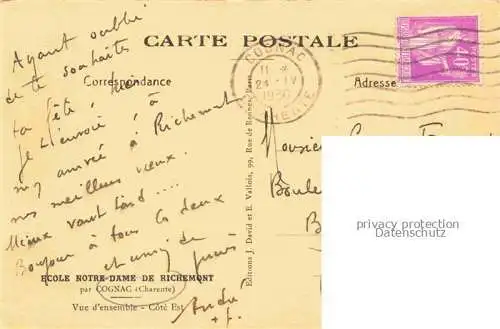 CARTE POSTALE
Correspondance
Adresse
COGNAC
24 - IV
1936
CHARENTE
40c
Ayant oublié
de te souhaiter
ta fête, bien
je t'envoie, à
mon arrivée à Richemont
nos meilleurs vœux.
Mieux vaut tard ....
Bonjour à tous les deux
et amis de
André
Monsieur
Boule
Editions J. David et E. Vallois, 99, Rue de Rennes, Paris
ECOLE NOTRE-DAME DE RICHEMONT
par COGNAC (Charente)
Vue d'ensemble - Côté Est
privacy protection
Datenschutz